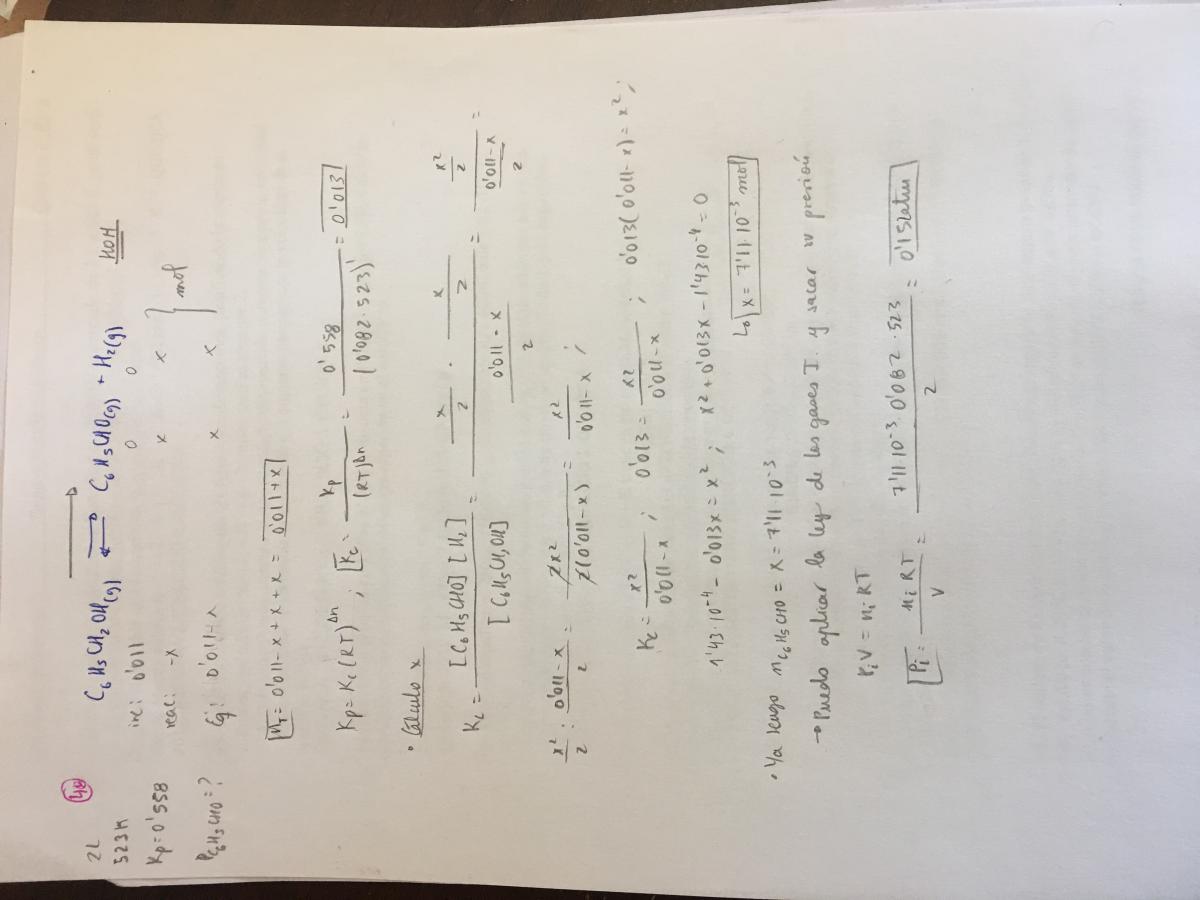 48
2L
523K
Kp = 0'558
P C6H5CHO = ?
C6H5CH2OH(g) ⇌ C6H5CHO(g) + H2(g)
ini: 0'011 0 0
reac: -x x x
Eq: 0'011-x x x } mol
nT = 0'011 - x + x + x = 0'011 + x
Kp = Kc (RT)^Δn ; Kc = Kp / (RT)^Δn = 0'558 / (0'082 · 523)^1 = 0'013
• Cálculo x
Kc = [C6H5CHO] [H2] / [C6H5CH2OH] = (x/2 · x/2) / ((0'011 - x)/2) = (x²/2) / ((0'011 - x)/2) =
x²/2 : (0'011 - x)/2 = 2x² / 2(0'011 - x) = x² / (0'011 - x) ;
Kc = x² / (0'011 - x) ; 0'013 = x² / (0'011 - x) ; 0'013 (0'011 - x) = x² ;
1'43·10⁻⁴ - 0'013x = x² ; x² + 0'013x - 1'43·10⁻⁴ = 0
↳ x = 7'11·10⁻³ mol
• Ya tengo n C6H5CHO = x = 7'11·10⁻³
→ Puedo aplicar la ley de los gases I. y sacar su presión
PiV = niRT
Pi = ni RT / V = 7'11·10⁻³ · 0'082 · 523 / 2 = 0'152atm